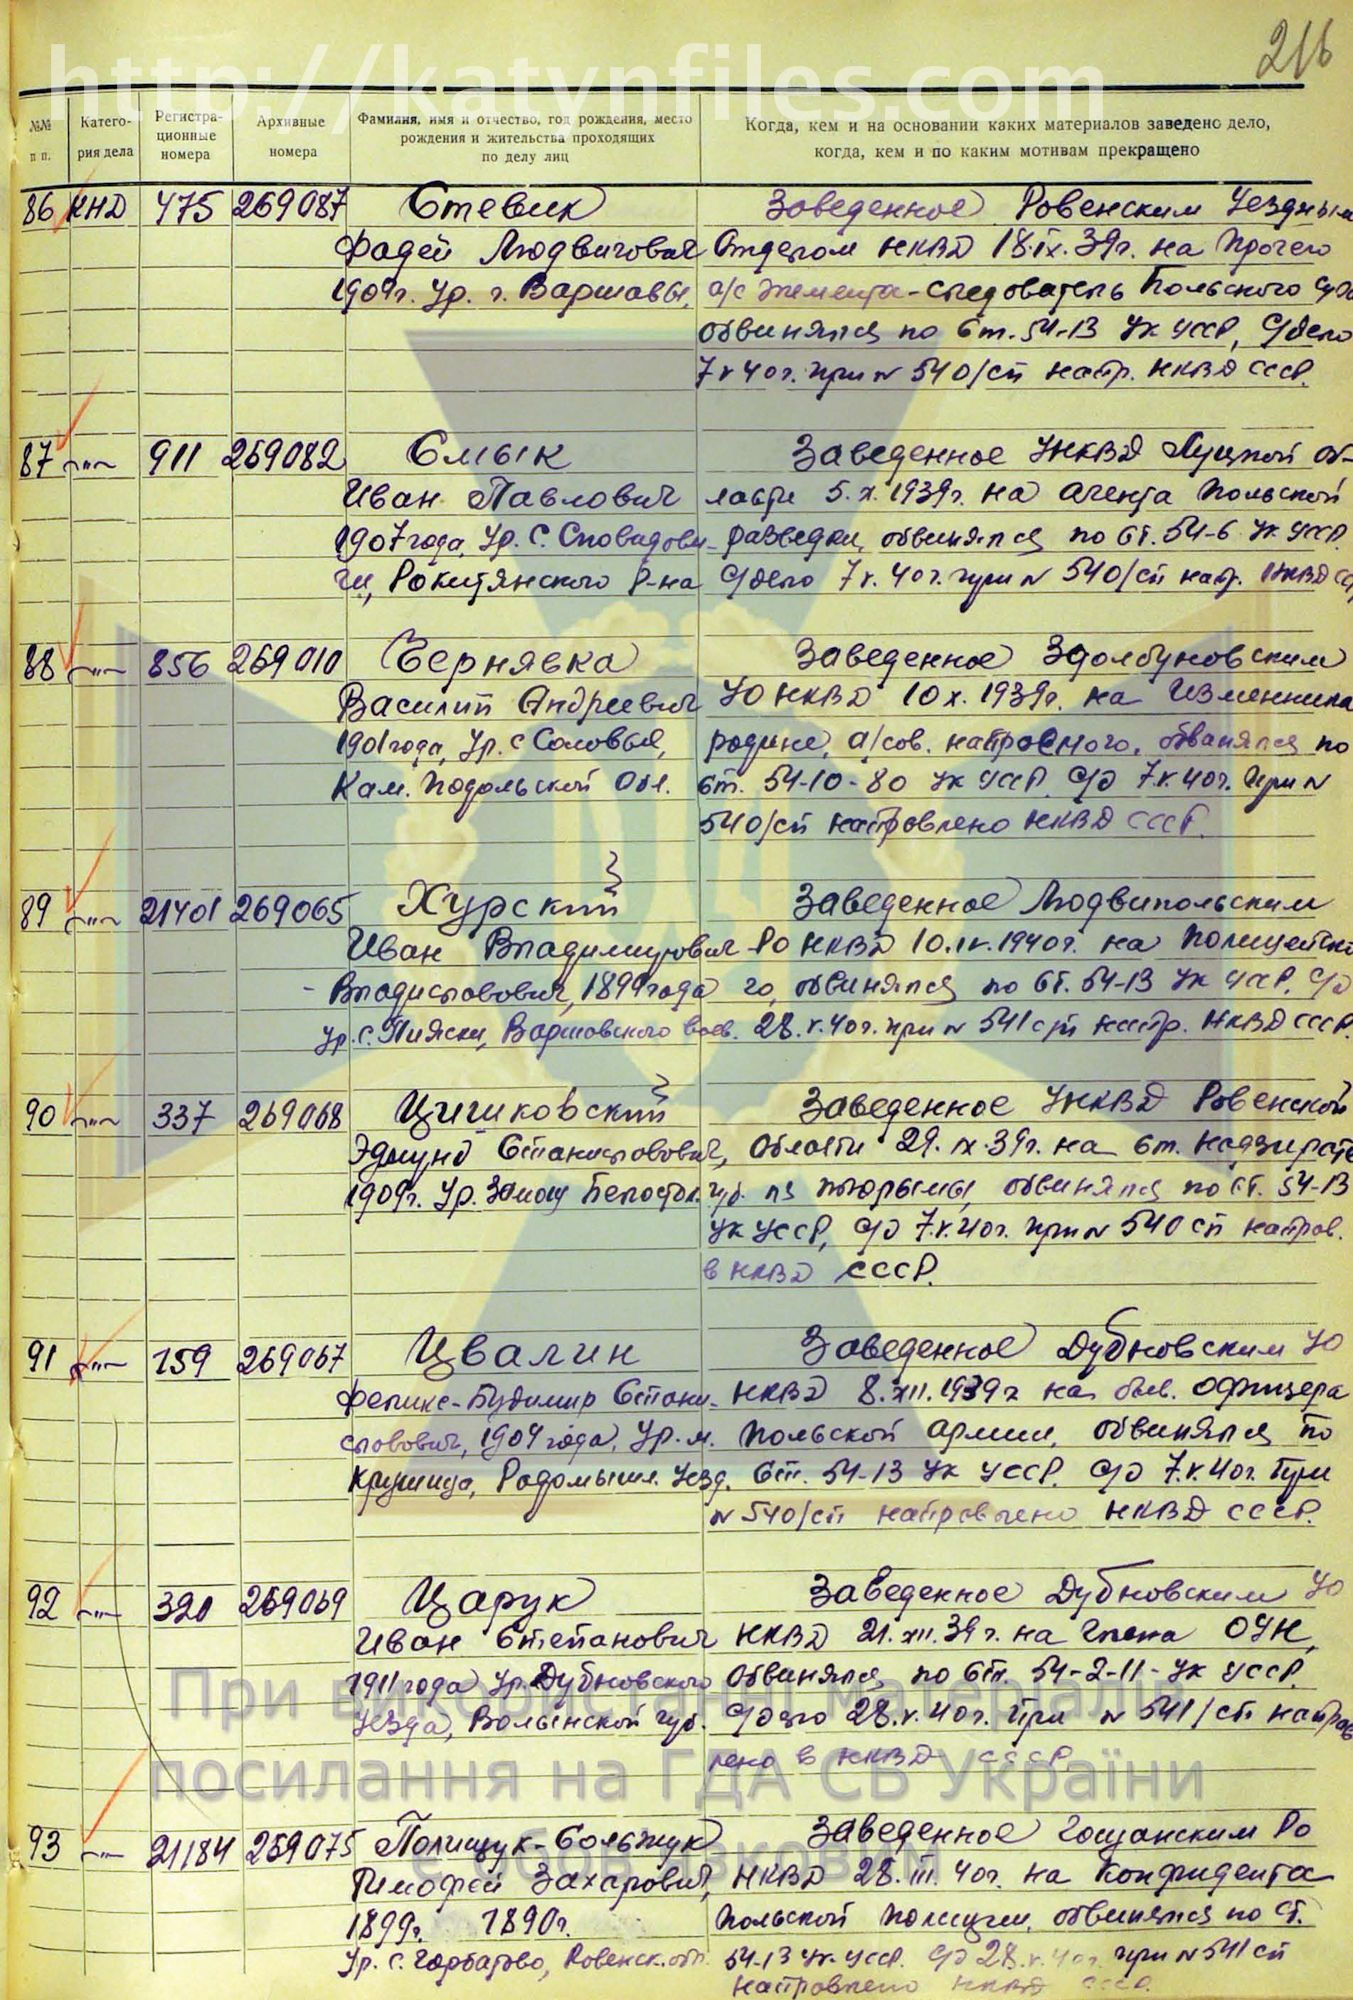 216
http://katynfiles.com
№№ п п.
Катего-
рия дела
Регистра-
ционные
номера
Архивные
номера
Фамилия, имя и отчество, год рождения, место
рождения и жительства проходящих
по делу лиц
Когда, кем и на основании каких материалов заведено дело,
когда, кем и по каким мотивам прекращено
86 КНД 475 269087 Стевик Заведенное Ровенским Уездным
Фадей Людвигович Отделом НКВД 18.IX.39г. на прочего
1909г. Ур. г. Варшавы, а/с элемента-следователь Польского
обвинялся по ст. 54-13 УК УССР, С/дело
7 V 40г. при № 540/сп напр. НКВД СССР.
87 -"- 911 269082 Смык Заведенное УНКВД Луцкой об-
Иван Павлович ласти 5.X.1939г. на агента Польской
1907 года, Ур. С. Сновидови- разведки, обвинялся по ст. 54-6 УК УССР.
чи, Рокитянского Р-на С/дело 7 V. 40г. при № 540/сп напр. НКВД
88 -"- 856 269010 Чернявка Заведенное Здолбуновским
Василий Андреевич УО НКВД 10 X. 1939г. на изменника
1901 года, Ур. С Соловья, родине, а/сов. направленного, обвинялся по
Кам. Подольской Обл. ст. 54-10-80 УК УССР. С/д 7.V.40г. при №
540/сп направлено НКВД СССР.
89 -"- 21401 269065 Хурский Заведенное Людвипольским
Иван Владимирович РО НКВД 10.IV.1940г. на Полицейско
- Владиславович, 1899 года го, обвинялся по ст. 54-13 УК УССР. С/д
Ур. С. Пияски, Варшовского воев. 28.V.40г. при № 541 сп напр. НКВД СССР.
90 -"- 337 269068 Цишковский Заведенное УНКВД Ровенской
Эдмунд Станиславович, Области 29.IX.39г. на ст. надзирате
1909г. Ур. Белосток. губ. тюрьмы, обвинялся по ст. 54-13
УК УССР, С/д 7.V.40г. при № 540 сп направ.
в НКВД СССР.
91 -"- 159 269067 Цвалин Заведенное Дубновским УО
Феликс-Будимир Стани- НКВД 8.XII.1939г на быв. офицера
славович, 1904 года, Ур. м. Польской армии, обвинялся по
Радомышл. Уезд. ст. 54-13 УК УССР. С/д 7.V.40г. при
№ 540/сп направлено НКВД СССР.
92 -"- 320 269069 Царук Заведенное Дубновским УО
Иван Степанович НКВД 21.XII.39г. на члена ОУН,
1911 года Ур. Дубновского Обвинялся по ст. 54-2-11 - УК УССР.
Уезда, Волынской губ. С/дело 28.V.40г. при № 541/сп направ
лено в НКВД СССР
93 -"- 21184 269075 Полищук-Сольжук Заведенное Гощанским РО
Тимофей Захарович, НКВД 28.III.40г. на Конфидента
1899г. 1890г. Польской Полиции, обвинялся по ст.
Ур. С. Горбатово, Ровенск. обл. 54-13 УК УССР. С/д 28.V.40г. при № 541 сп
направлено НКВД СССР.
При використанні матеріалів
посилання на ГДА СБ України
є обов'язковим